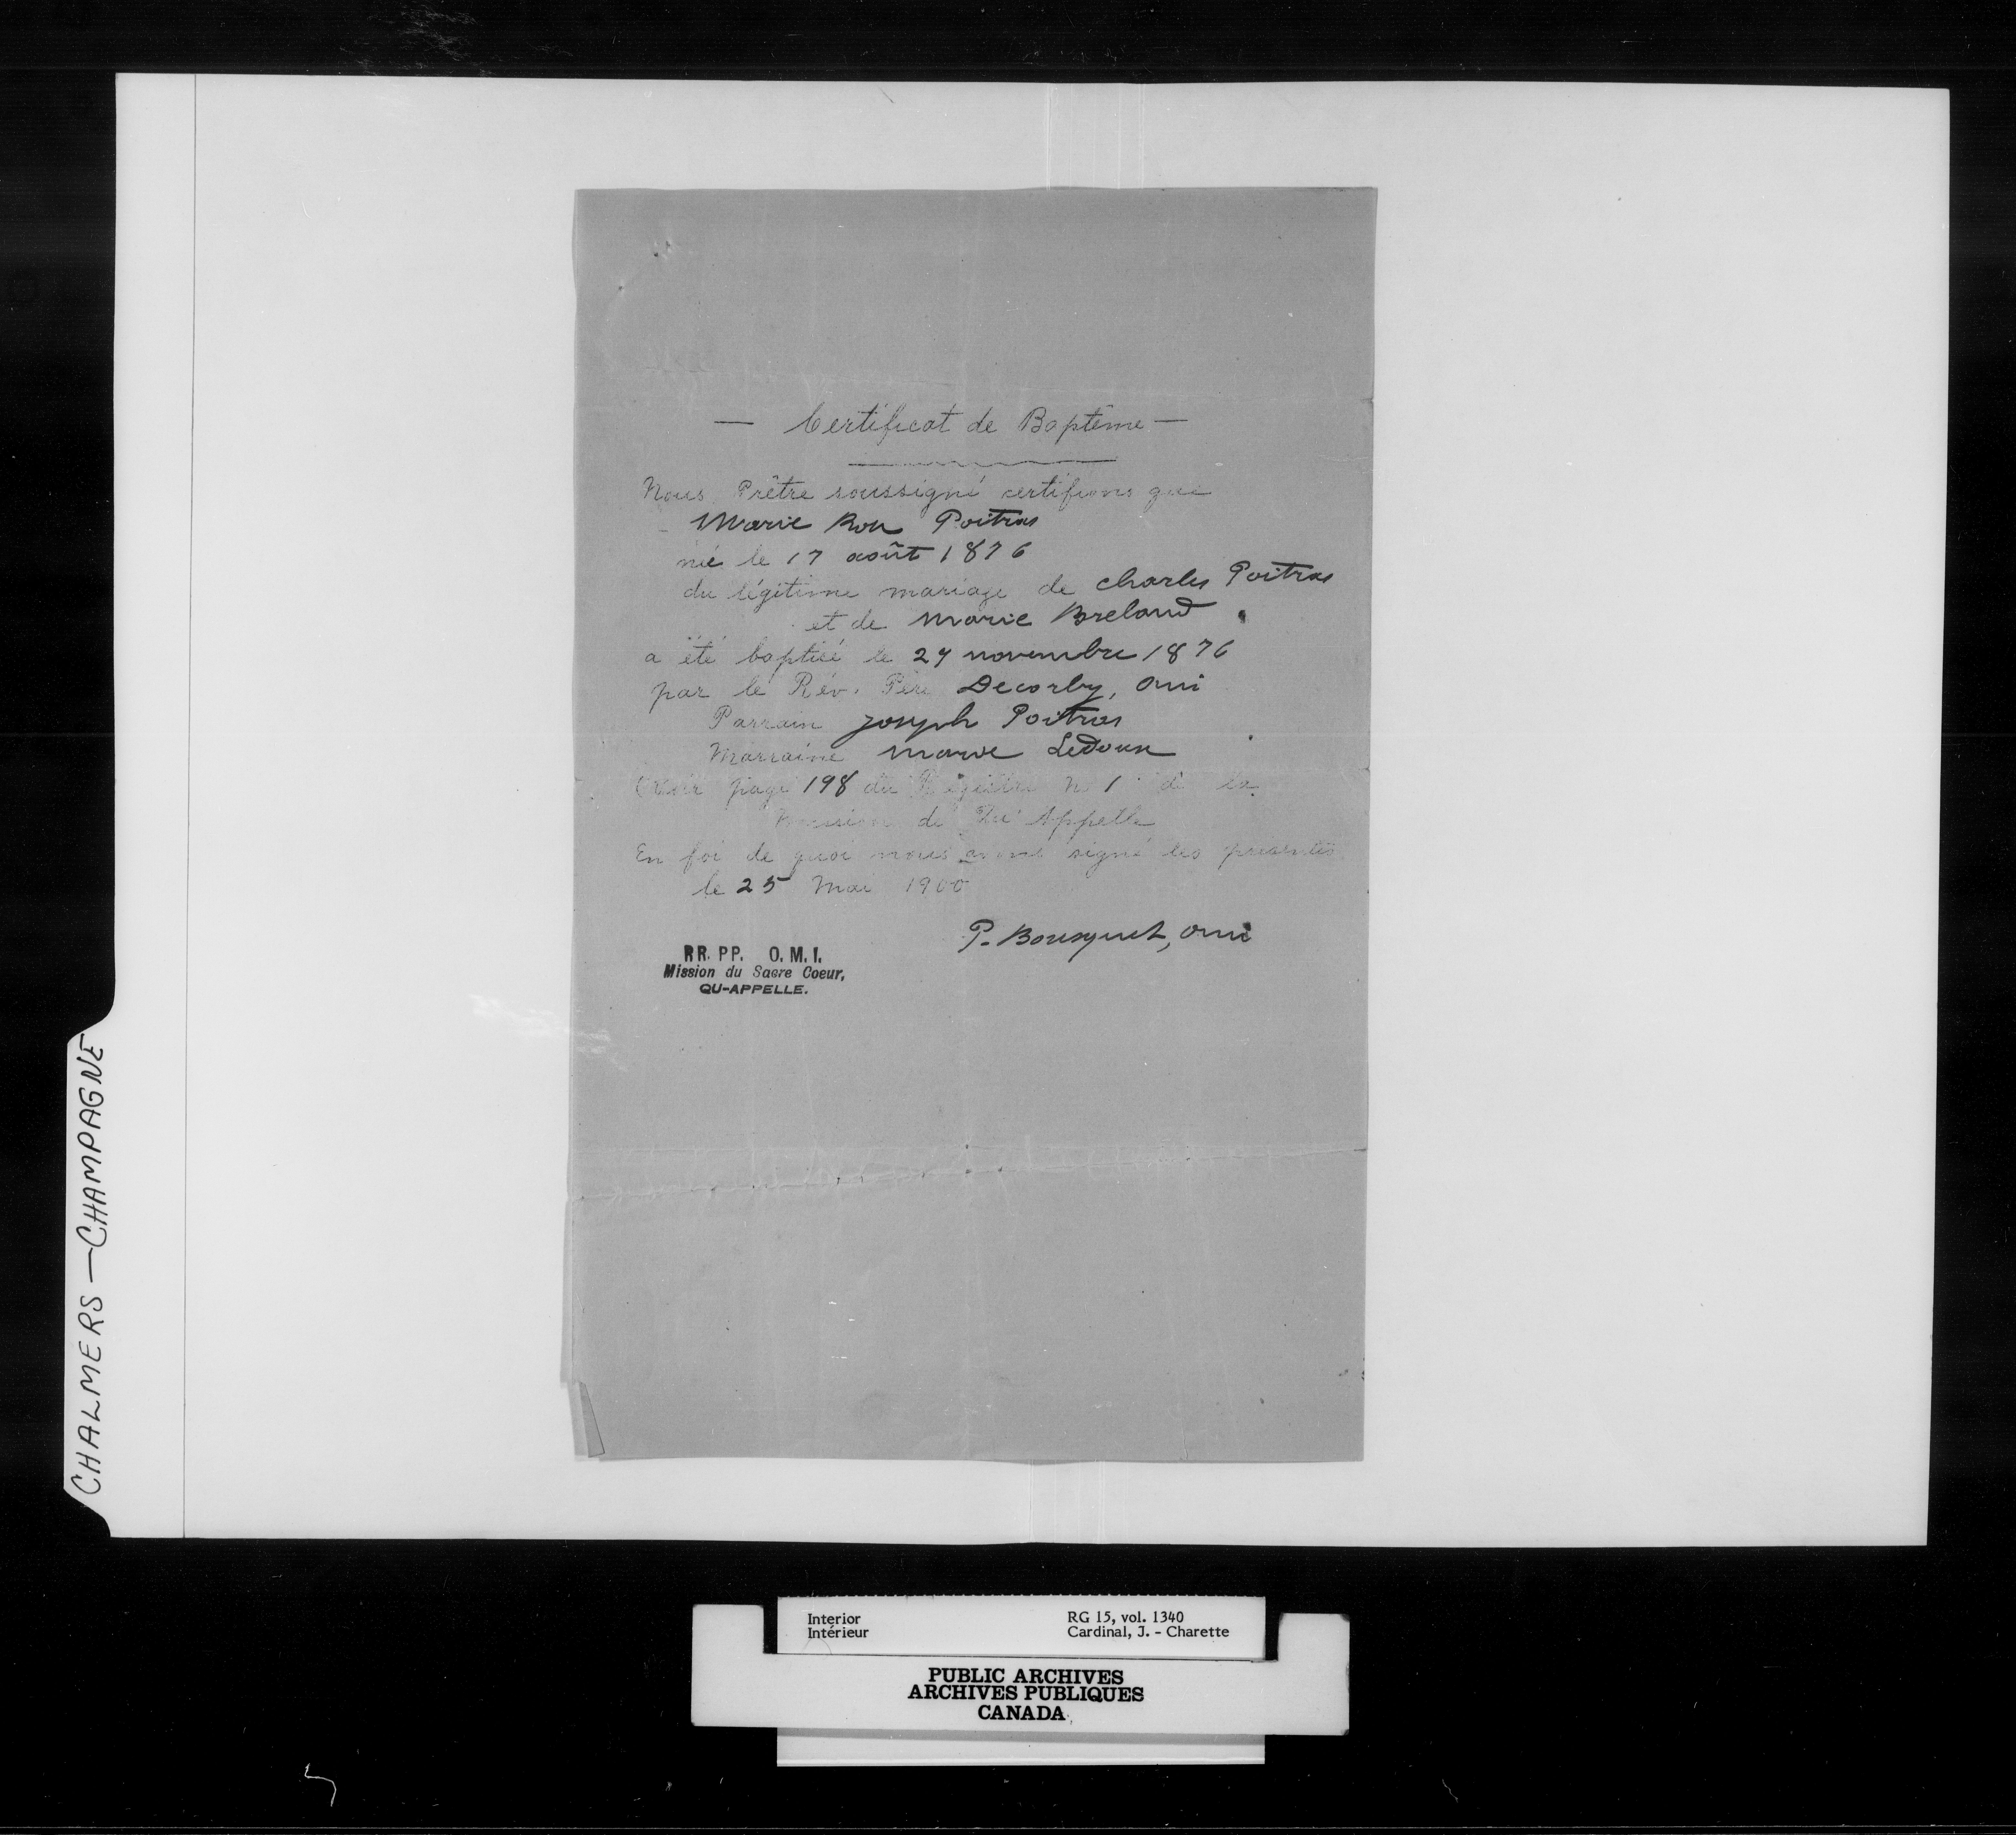 — Certificat de Baptême —
Nous Prêtre soussigné certifions que
Marie Rose Poitras
née le 17 août 1876
du légitime mariage de Charles Poitras
et de Marie Breland
a été baptisé le 27 novembre 1876
par le Rév. Père Decorby, omi
Parrain Joseph Poitras
Marraine Marie Ledoux
page 198 du Régistre No 1 de la
Mission de Qu'Appelle
En foi de quoi nous avons signé les présentes
le 25 Mai 1900
P. Bousquet, omi
RR. PP. O. M. I.
Mission du Sacre Coeur,
QU-APPELLE.
CHALMERS — CHAMPAGNE
Interior RG 15, vol. 1340
Intérieur Cardinal, J. - Charette
PUBLIC ARCHIVES
ARCHIVES PUBLIQUES
CANADA